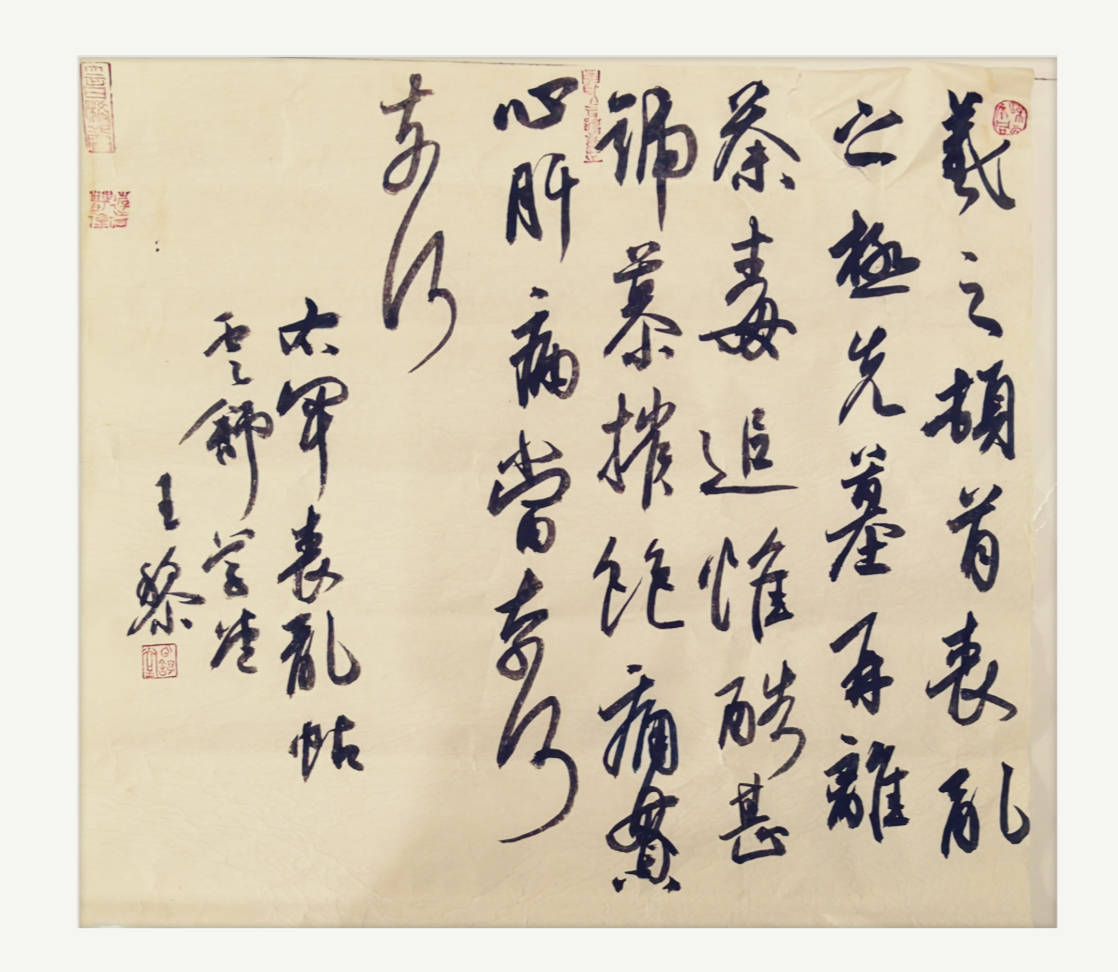 羲之頓首喪亂
之極先墓再離
荼毒追惟酷甚
號慕摧絕痛貫
心肝痛當奈何
奈何
右軍喪亂帖
雲 學
王黎